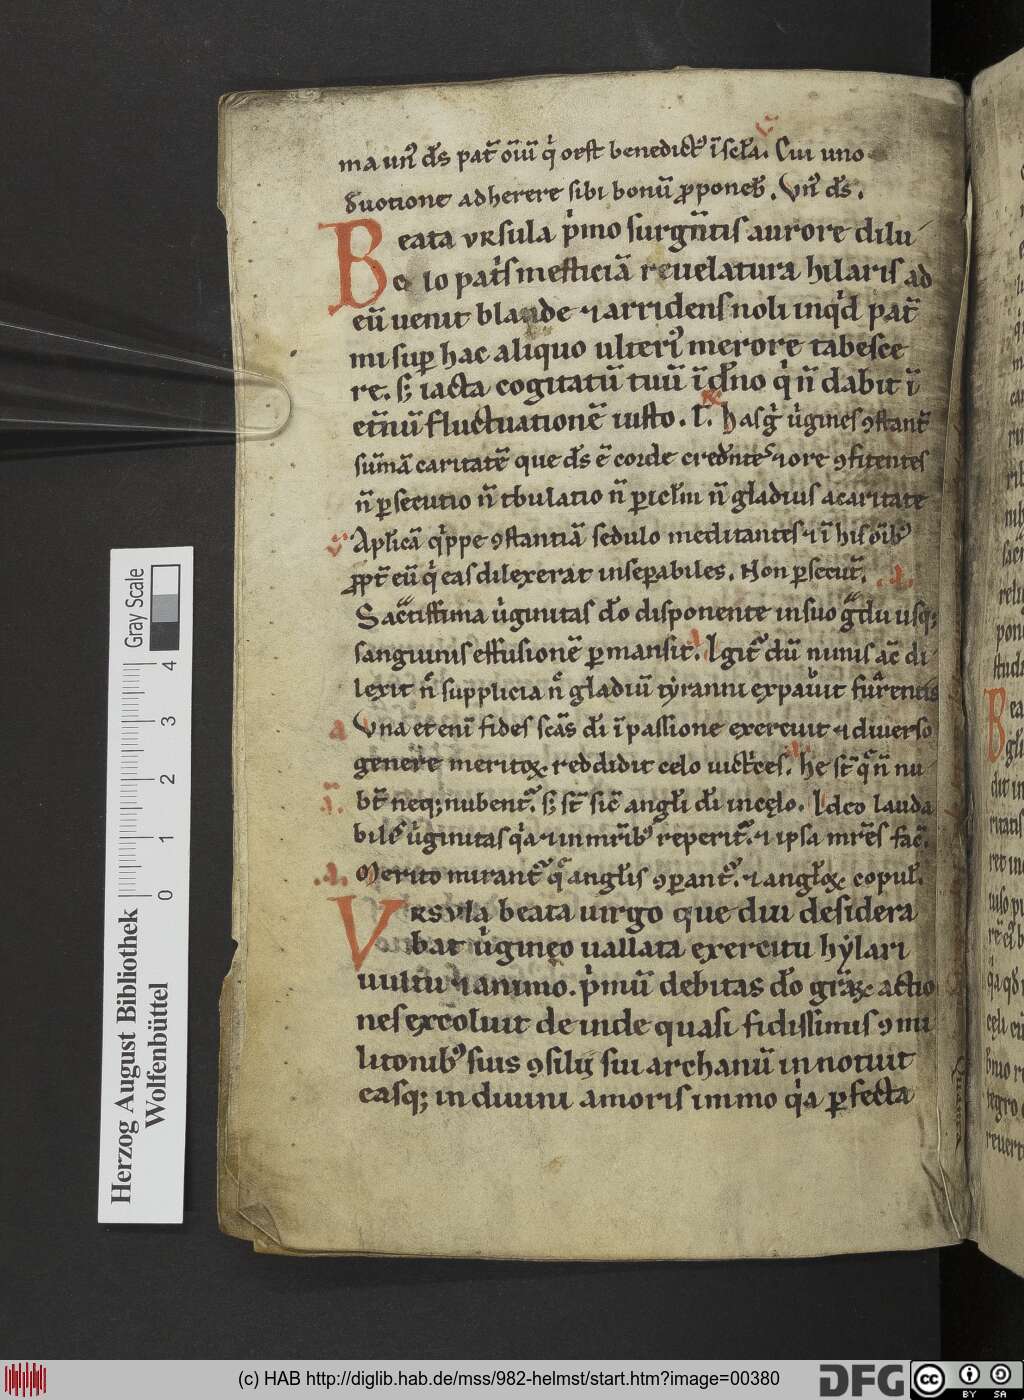 ma un᷒ d̄s pat̄ om̄iū qͥ oēst benedict᷒ ī sc̄la. Cui uno
deuotione adherere sibi bonū ꝓponeb̄. Vn᷒ d̄s.
Beata vrsula pͥmo surgn̄tis aurore dilu
lo pat̄s mesticiā reuelatura hilaris ad
eū uenit blande ⁊ arridens noli inqͥd pat̄
mi suꝑ hac aliquo ulteri᷒ merore tabesce
re. s; iacta cogitatū tuū ī dn̄o qͥ n̄ dabit ī
et̄nū fluctuationē iusto. R̄. Has gͥ uͥgines ꝯstant̄
sum̄a caritatē que d̄s ē corde credn̄tes ⁊ ore ꝯfitentes
n̄ ꝑsecutio n̄ tbulatio n̄ ꝑicl̄m n̄ gladius acaritate
V̄ Ap̄licā qͥppe ꝯstantiā sedulo meditantes ⁊ ī his oīb᷒
ꝓpt̄ eū qͥ eas dilexerat inseꝑabiles. Non ꝑsecut̄. A.
Sac̄tissima uͥginitas do̅ disponente in suo gᷓdu usq;
sanguinis effusionē ꝑmansit. A Igit̄ dū nimis ac̄ di
lexit n̄ supplicia n̄ gladiū tyranni expauit furentis
A Vna et enī fides sc̄as dī ī passione exercuit ⁊ diuerso
genere meritoꝝ reddidit celo uictͥces. A He st̄ qͤ n̄ nu
bt̄ neq; nubent̄. s; st̄ sic̄ angl̄i dī in cęlo. Ideo lauda
bil᷒ uͥginitas qͥa ⁊ in mr̄ib᷒ reperit̄ ⁊ ipsa mr̄es fac̄.
A. Merito mirant̄ qͤ angl̄is ꝯꝑant̄. ⁊ angl̄oꝝ copul̄.
Vrsvla beata uirgo que diu desidera
bat uͥgineo uallata exercitu hẏlari
uultu ⁊ animo. pͥmū debitas do̅ gr̄aꝝ actio
nes excoluit de inde quasi fidissimis ꝯmi
litonib᷒ suis ꝯsilij sui archanū in notuit
easq; in diuini amoris immo qͥa ꝑfecta
Gray Scale
0 1 2 3 4
Herzog August Bibliothek
Wolfenbüttel
(c) HAB http://diglib.hab.de/mss/982-helmst/start.htm?image=00380
DFG
cc BY SA